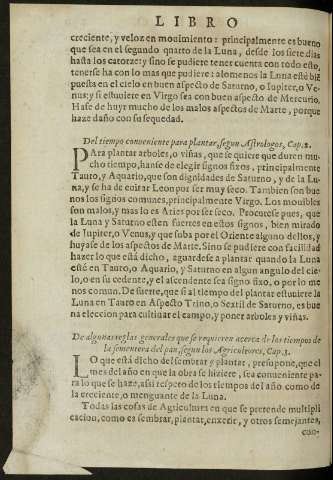 LIBRO
creciente, y veloz en mouimiento: principalmente es bueno
que sea en el segundo quarto de la Luna, desde los siete dias
hasta los catorze: y sino se pudiere tener cuenta con todo esto,
tenerse ha con lo mas que pudire: alomenos la Luna esté biē
puesta en el cielo en buen aspecto de Saturno, o Iupiter, o Ve
nus: y si estuuiere en Virgo sea con buen aspecto de Mercurio.
Hase de huyr mucho de los malos aspectos de Marte, porque
haze daño con su sequedad.
Del tiempo conueniente para plantar, segun Astrologos, Cap. 2.
PAra plantar arboles, o viñas, que se quiere que duren mu-
cho tiempo, hanse de elegir signos fixos, principalmente
Tauro, y Aquario, que son dignidades de Saturno, y de la Lu-
na, y se ha de euitar Leon por ser muy seco. Tambien son bue
nos los signos comunes, principalmente Virgo. Los mouibles
son malos, y mas lo es Aries por ser seco. Procurese pues, que
la Luna y Saturno esten fuertes en estos signos, bien mirado
de Iupiter, o Venus, y que suba por el Oriente alguno dellos, y
huyase de los aspectos de Marte. Sino se pudiere con facilidad
hazer lo que está dicho, aguardese a plantar quando la Luna
esté en Tauro, o Aquario, y Saturno en algun angulo del cie-
lo, o en su cedente, y el ascendente sea signo fixo, o por lo me
nos comun. De suerte, que si al tiempo del plantar estuuiere la
Luna en Tauro en Aspecto Trino, o Sextil de Saturno, es bue
na eleccion para cultiuar el campo, y poner arboles y viñas.
De algunas reglas generales que se requieren acerca de los tiempos de
la sementera del pan, segun los Agricultores, Cap. 3.
LO que está dicho del sembrar y plantar, presupone, que el
mes del año en que la obra se hiziere, sea conueniente pa-
ra lo que se haze, assi respeto de los tiempos del año como de
la creciente, o menguante de la Luna.
Todas las cosas de Agricultura en que se pretende multipli
cacion, como es sembrar, plantar, enxerir, y otros semejantes,
con-